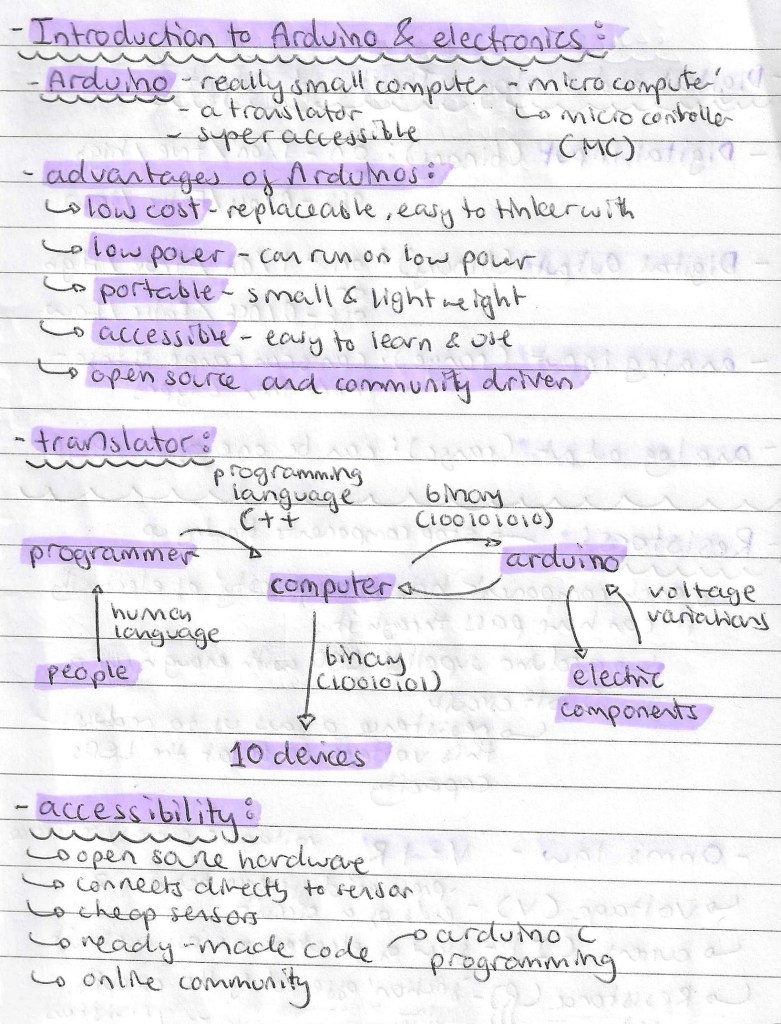 - Introduction to Arduino & electronics:
- Arduino - really small computer - 'microcomputer'
- a translator ↳ microcontroller
- super accessible (MC)
- advantages of Arduinos:
↳ low cost - replaceable, easy to tinker with
↳ low power - can run on low power
↳ portable - small & lightweight
↳ accessible - easy to learn & use
↳ open source and community driven
- translator:
programming
language
C++
binary
(100101010)
programmer
computer
arduino
human
language
people
binary
(10010101)
voltage
variations
electric
components
10 devices
- accessibility:
↳ open source hardware
↳ connects directly to sensor
↳ cheap sensors
↳ ready-made code → arduino C
programming
↳ online community